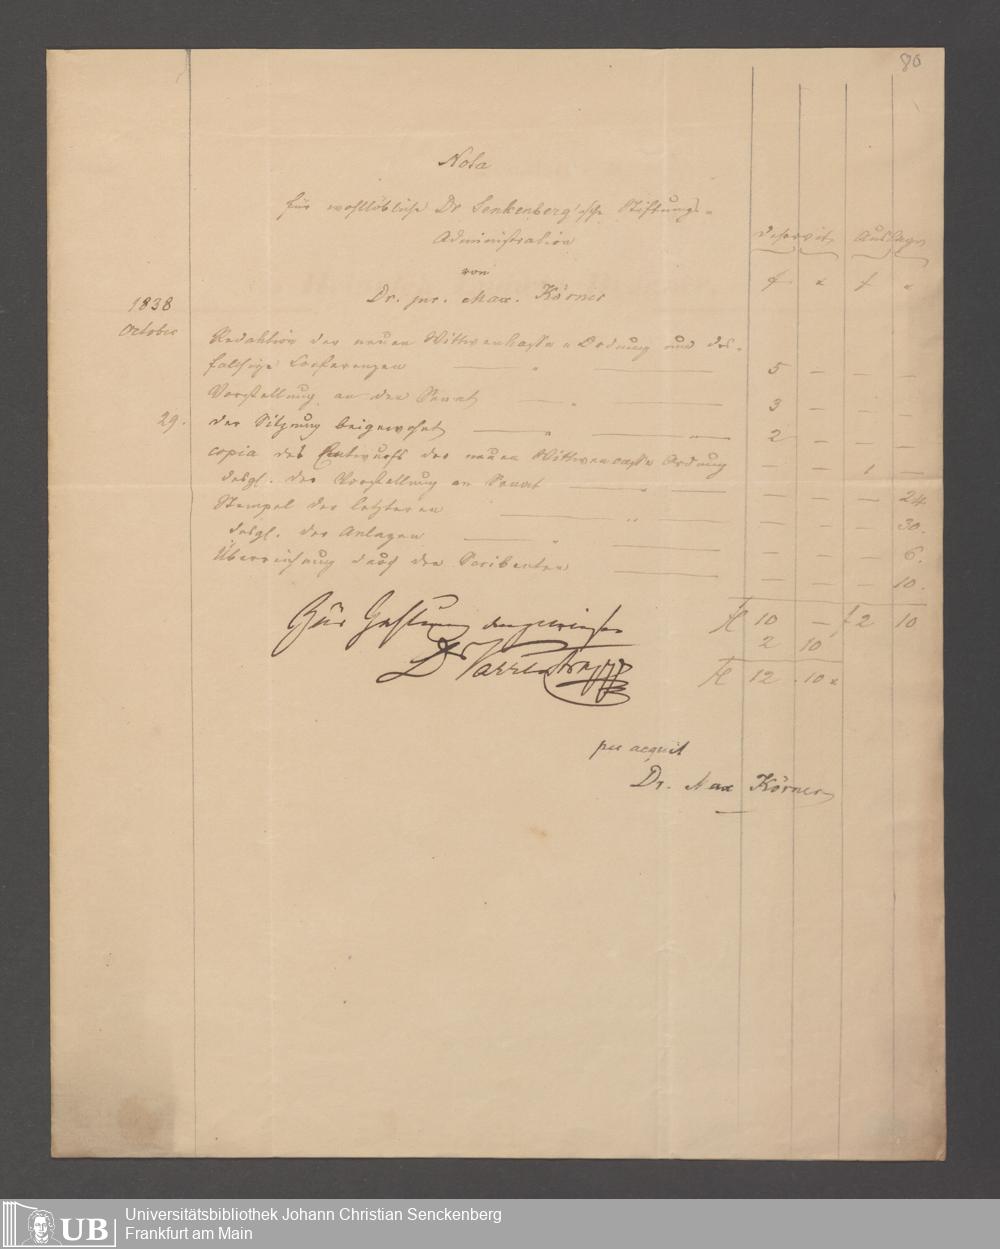 80
Nota
für wohllöbliche Dr Senkenberg'sche Stiftungs-
Administration
von
Dr. jur. Max. Körner
deservit Auslage
f x f x
1838
October
Redaktion der neuen Wittwenkasse Ordnung und des-
fallsige Conferenzen — " — 5 — — —
Vorstellung an den Senat — " — 3 — — —
29. der Sitzung beigewohnt — " — 2 — — —
copia des Entwurfs der neuen Wittwencasse Ordnung — — 1 —
desgl. der Vorstellung an Senat — " — — — — 24
Stempel der letzteren — " — — — — 30.
desgl. der Anlagen — " — — — — 6.
Überreichung durch den Scribenten — — — — 10.
fl 10 — f 2 10
2 10
fl 12 . 10 x
Zur Zahlung angewiesen
Dr Varrentrapp
per acquit
Dr. Max Körner
UB
Universitätsbibliothek Johann Christian Senckenberg
Frankfurt am Main